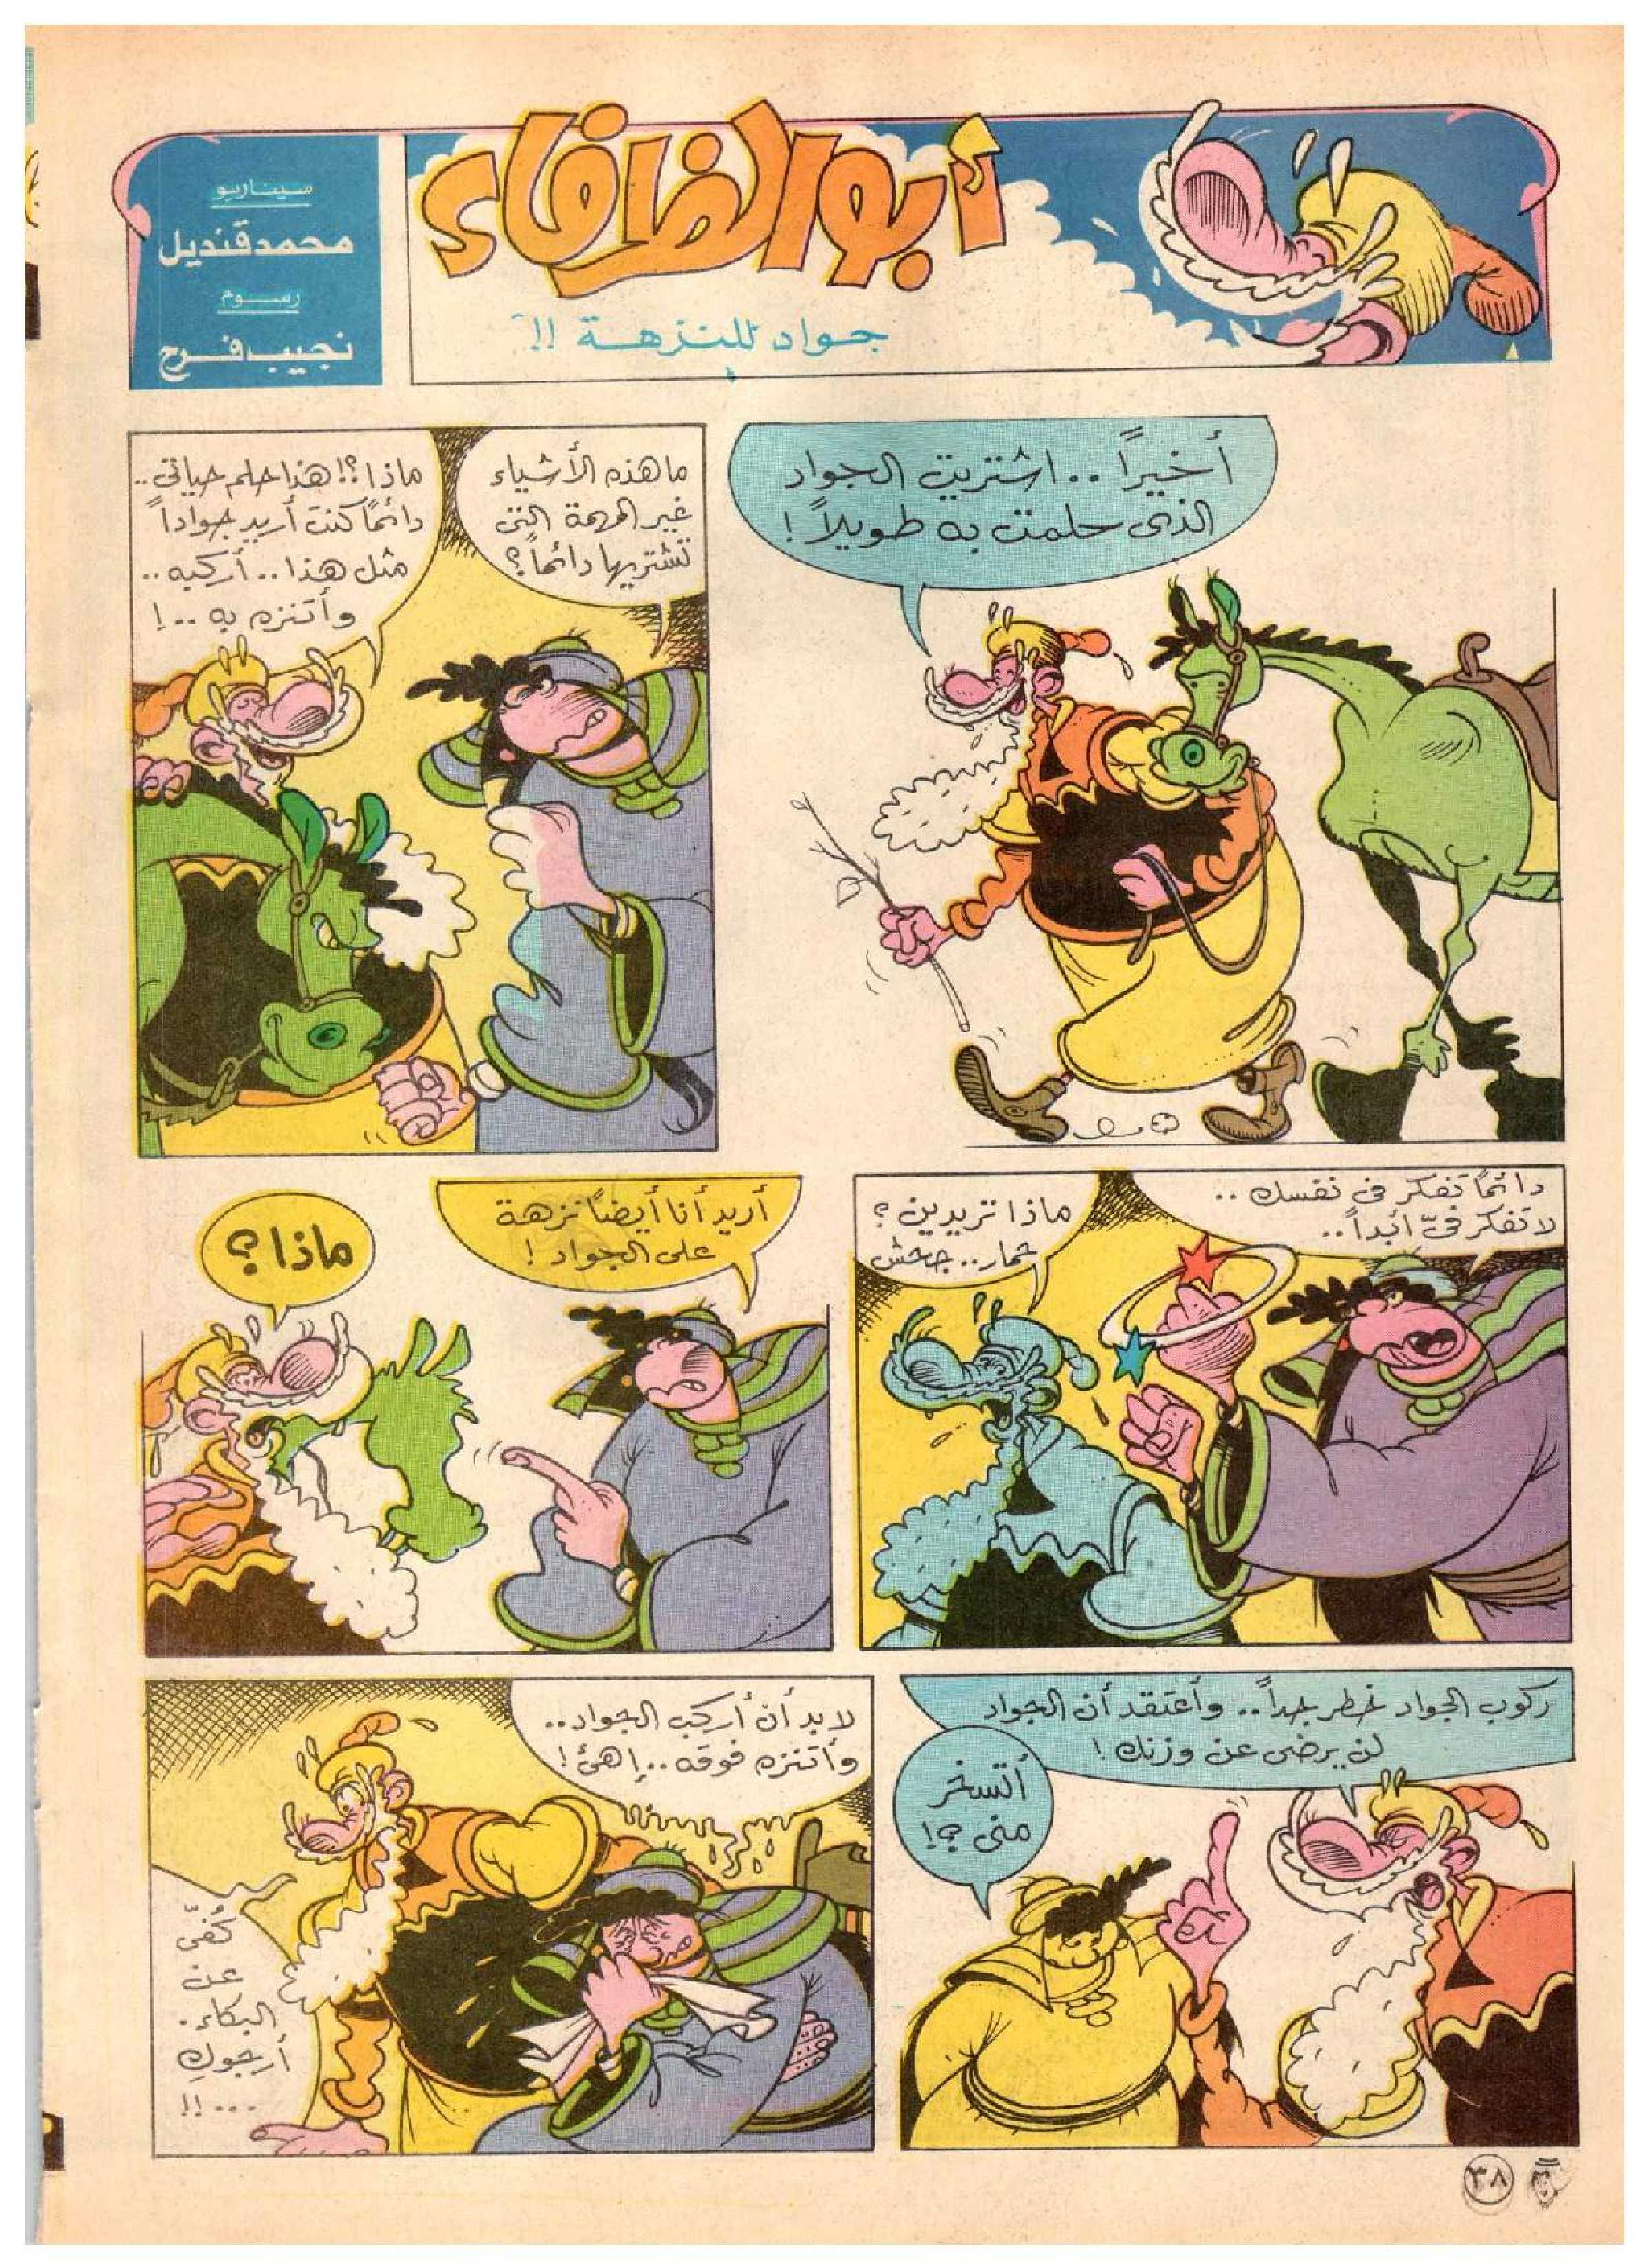 أبو الظرفاء
جواد للنزهة !!
سيناريو
محمد قنديل
رسوم
نجيب فرح
أخيراً .. اشتريت الجواد
الذى حلمت به طويلاً !
ما هذه الأشياء
غير المهمة التى
تشتريها دائماً ؟
ماذا ؟! هذا حلم حياتى ..
دائماً كنت أريد جواداً
مثل هذا .. أركبه ..
وأتنزه به .. !
دائماً تفكر فى نفسك ..
لا تفكر فىّ أبداً ..
ماذا تريدين ؟
حمار .. جحش
أريد أنا أيضاً نزهة
على الجواد !
ماذا ؟
ركوب الجواد خطر جداً .. وأعتقد أن الجواد
لن يرضى عن وزنك !
أتسخر
منى ؟!
لابد أن أركب الجواد ..
وأتنزه فوقه .. إهئ !
كُفىّ
عن
البكاء .
أرجوكِ
... !!
٣٨